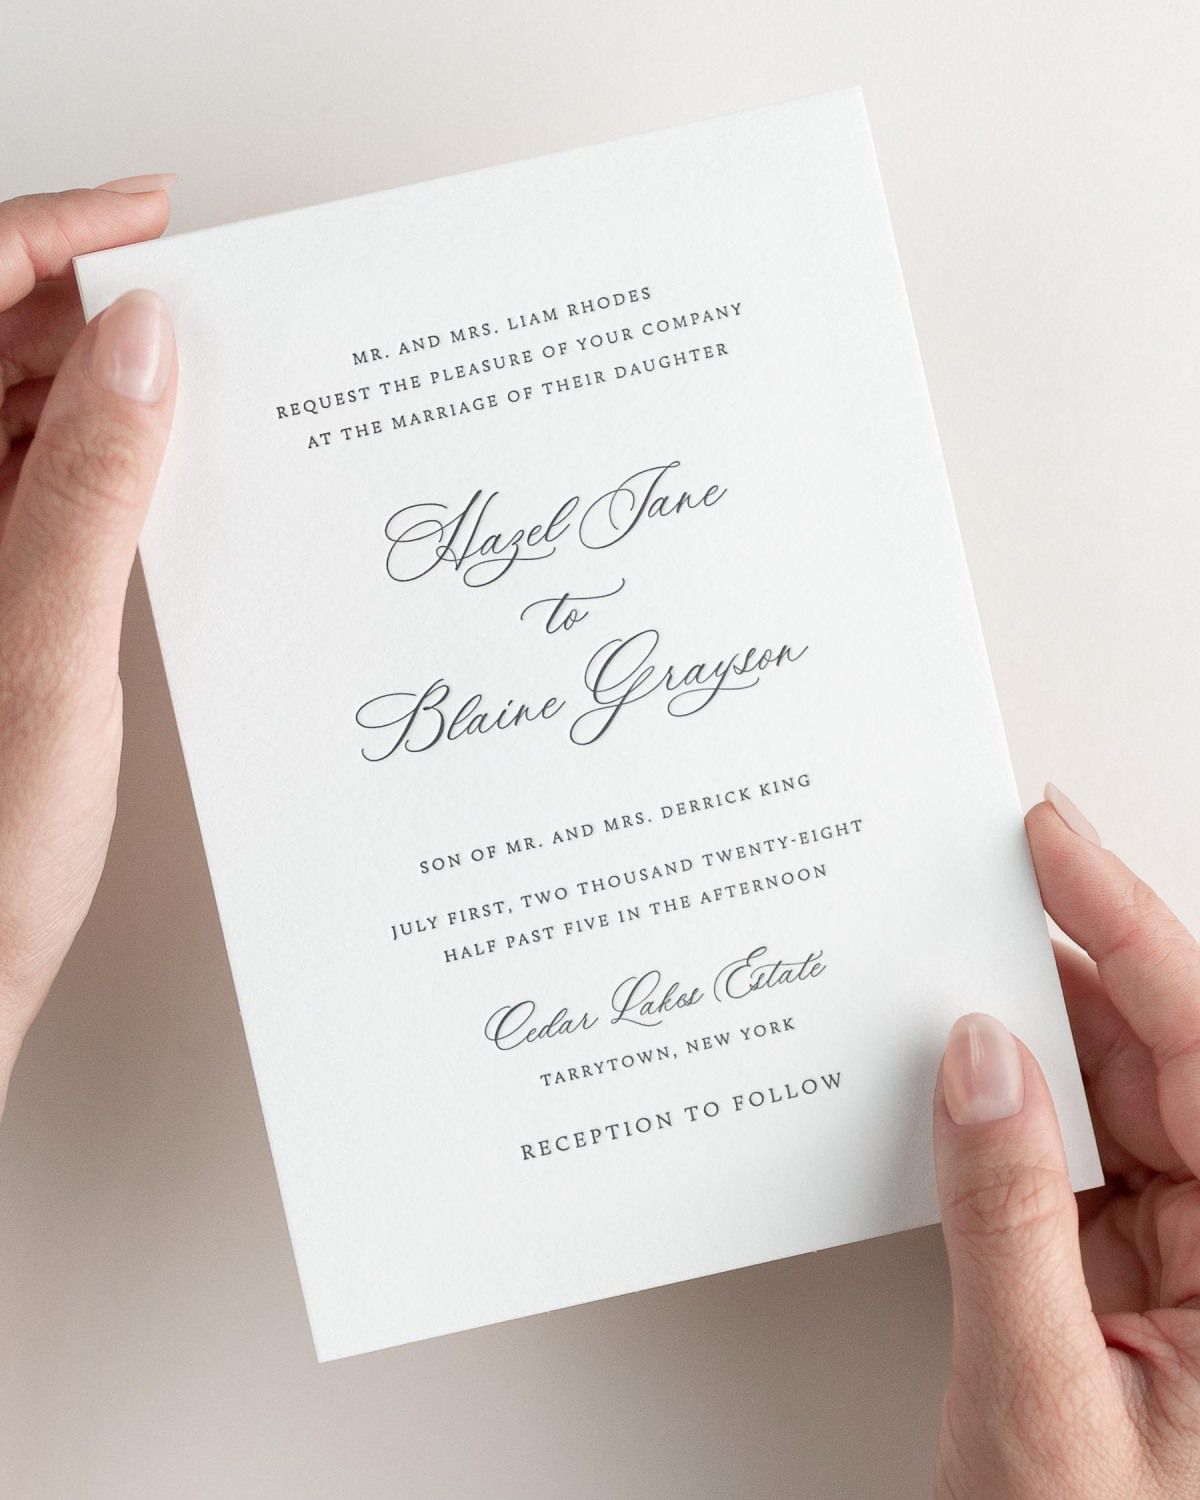 MR. AND MRS. LIAM RHODES
REQUEST THE PLEASURE OF YOUR COMPANY
AT THE MARRIAGE OF THEIR DAUGHTER
Hazel Jane
to
Blaine Grayson
SON OF MR. AND MRS. DERRICK KING
JULY FIRST, TWO THOUSAND TWENTY-EIGHT
HALF PAST FIVE IN THE AFTERNOON
Cedar Lakes Estate
TARRYTOWN, NEW YORK
RECEPTION TO FOLLOW